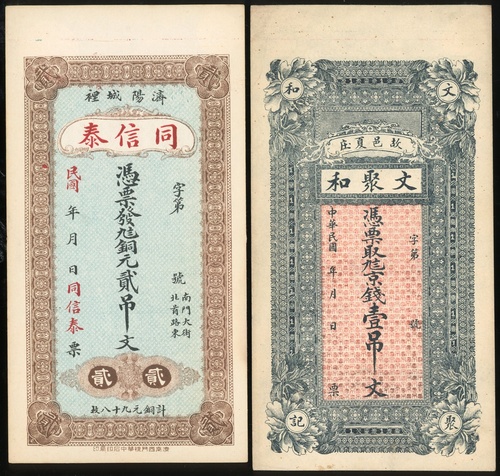 貳 貳
濟陽城裡
同信泰
字第 號
南門大街
北首路東
憑票發九八銅元貳吊文
民國 年 月 日同信泰票
貳 貳
計銅元九十八枚
文 和
故邑夏庄
文聚和
字第 號
憑票取九八京錢壹吊文
中華民國 年 月 日 票
聚 記